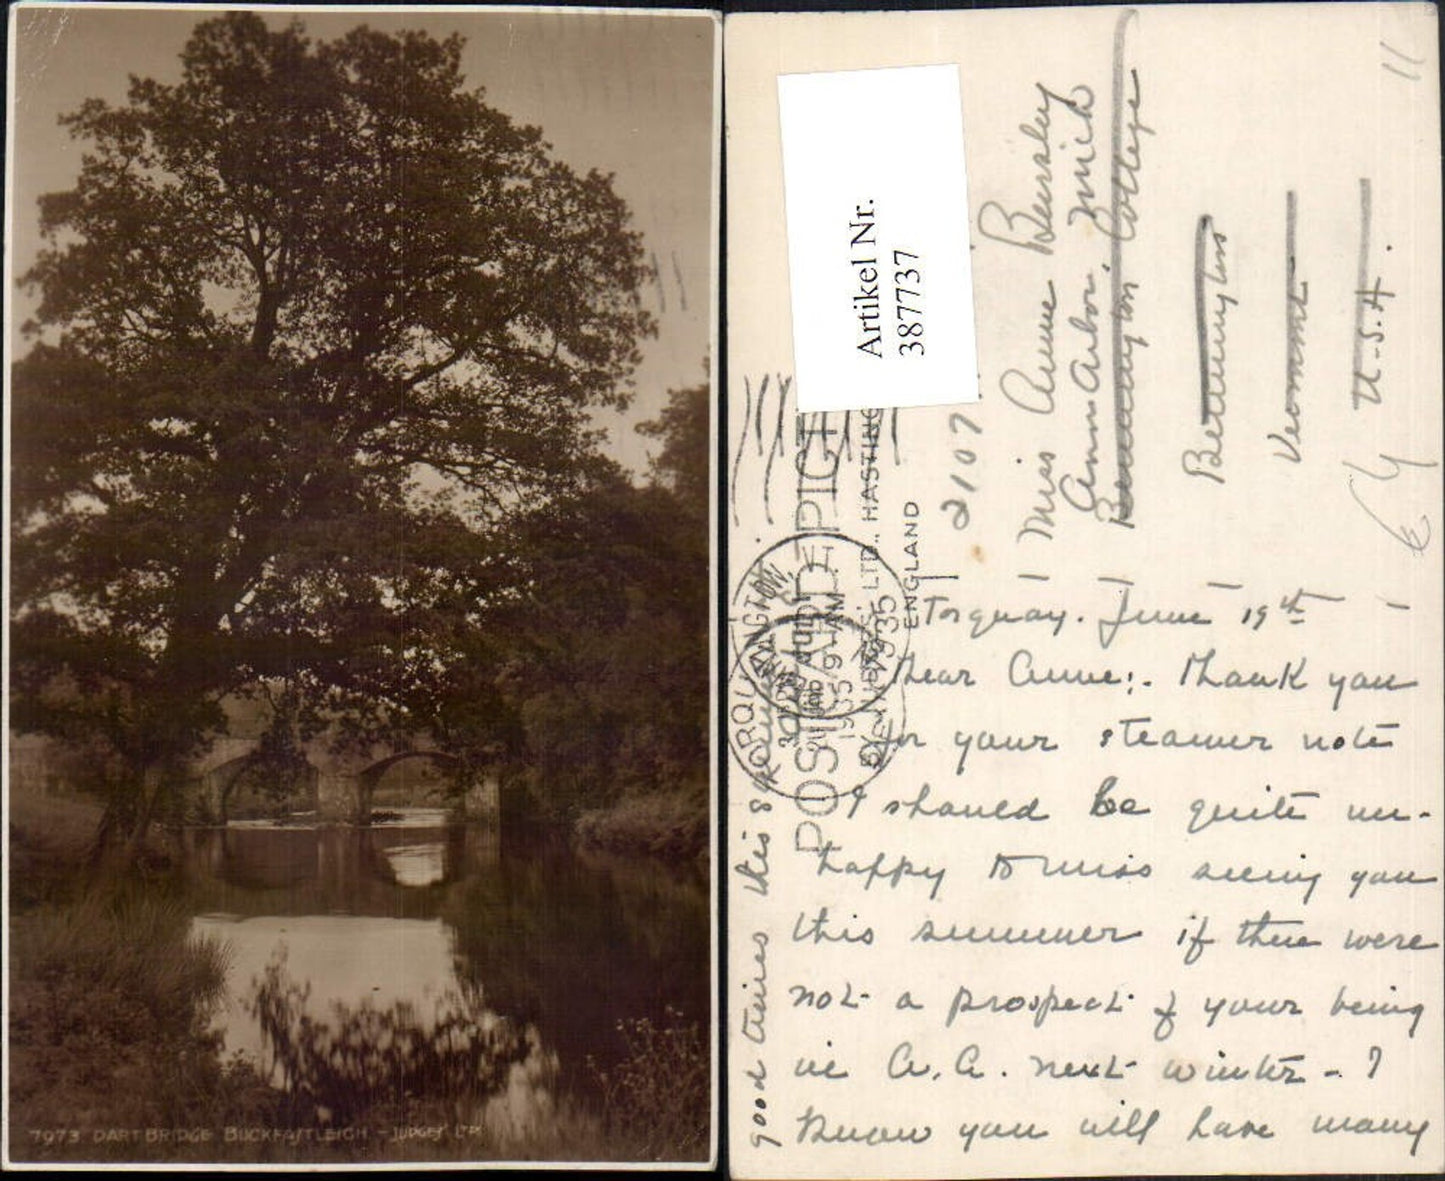 7973 DART BRIDGE BUCKFASTLEIGH - JUDGES LTD
Artikel Nr.
387737
11
21107
POSTCARD
LTD., HASTINGS
ENGLAND
1935
Miss Anne Beasley
Ann Arbor, Mich
Bennington College
Bennington
Vermont
U.S.A.
Torquay. June 19th
Dear Anne:. Thank you
for your steamer note
I should be quite un-
happy to miss seeing you
this summer if there were
not a prospect of your being
in A.A. next winter - I
know you will have many
good times this